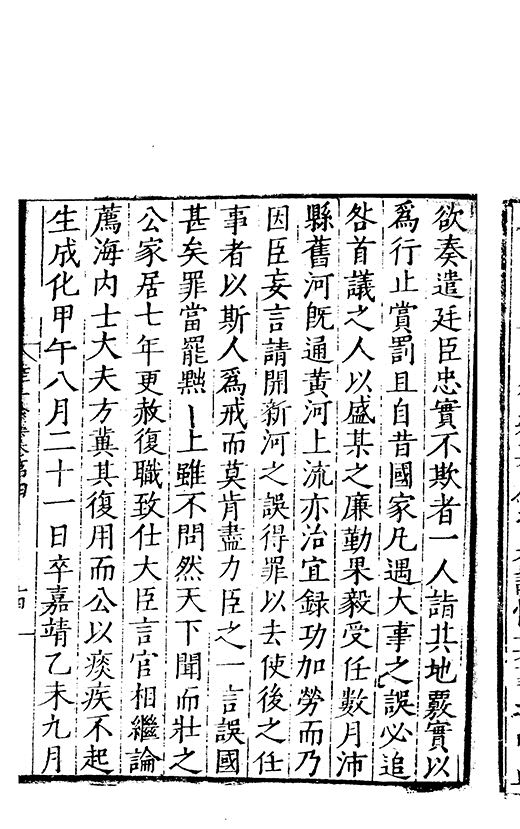 欲奏遣廷臣忠實不欺者一人詣其地覈實以
爲行止賞罰且自昔國家凡遇大事之誤必追
咎首議之人以盛某之廉勤果毅受任數月沛
縣舊河旣通黃河上流亦治宜録功加勞而乃
因臣妄言請開新河之誤得罪以去使後之任
事者以斯人爲戒而莫肯盡力臣之一言誤國
甚矣罪當罷黜上雖不問然天下聞而壯之
公家居七年更赦復職致仕大臣言官相繼論
薦海内士大夫方冀其復用而公以痰疾不起
生成化甲午八月二十一日卒嘉靖乙未九月